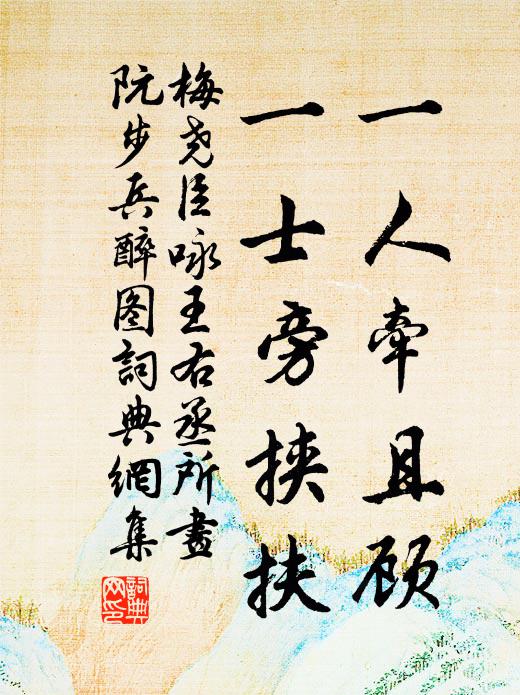 一人牽且顾
一士旁挟扶
梅尧臣咏王右丞所畫
阮步兵醉图詞典網集
詞典網印